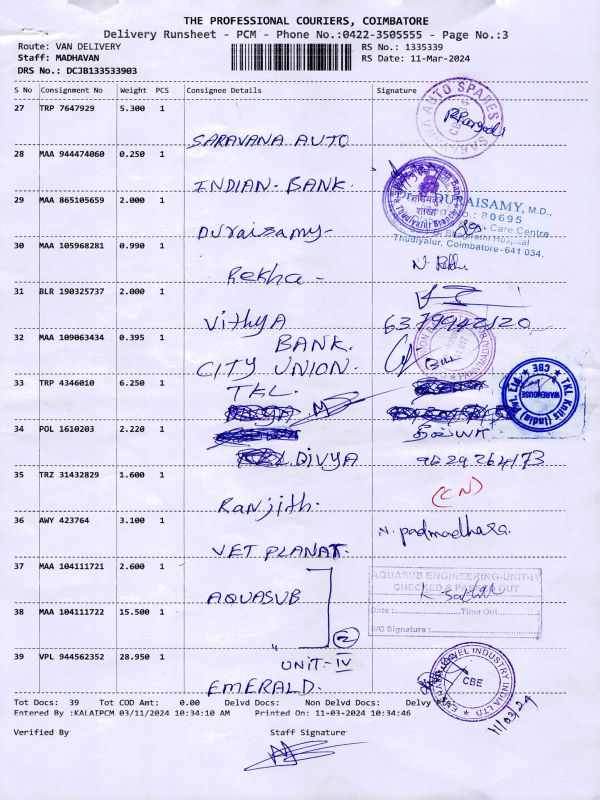 THE PROFESSIONAL COURIERS, COIMBATORE
Delivery Runsheet - PCM - Phone No.:0422-3505555 - Page No.:3
Route: VAN DELIVERY RS No.: 1335339
Staff: MADHAVAN RS Date: 11-Mar-2024
DRS No.: DCJB133533903
S No Consignment No Weight PCS Consignee Details Signature
27 TRP 7647929 5.300 1
AUTO SPARES
SARAVANA AUTO
28 MAA 944474060 0.250 1
INDIAN-BANK.
Thudiyalur Branch
29 MAA 865105659 2.000 1
DURAISAMY, M.D.,
: 80695
Care Centre
Thudiyalur, Coimbatore-641 034.
Duraisamy-
30 MAA 105968281 0.990 1
Rekha-
31 BLR 190325737 2.000 1
Vithya 6379942120
32 MAA 109063434 0.395 1
BANK.
CITY UNION.
33 TRP 4346010 6.250 1
TKL.
TKL Knits (India) Pvt. Ltd.
WAREHOUSE
CBE
34 POL 1610203 2.220 1
DIVYA 9629264173
35 TRZ 31432829 1.600 1
Ranjith. (CN)
36 AWY 423764 3.100 1
VET PLANAT. N. padmadhasa.
37 MAA 104111721 2.600 1
AQUASUB
AQUASUB ENGINEERING-UNIT-IV
Date : Time Out
S/G Signature :
38 MAA 104111722 15.500 1
2
UNIT-IV
39 VPL 944562352 28.950 1
EMERALD.
JEWEL INDUSTRY INDIA LTD
CBE
11/03/24
Tot Docs: 39 Tot COD Amt: 0.00 Delvd Docs: Non Delvd Docs: Delvy
Entered By :KALAIPCM 03/11/2024 10:34:10 AM Printed On: 11-03-2024 10:34:46
Verified By Staff Signature